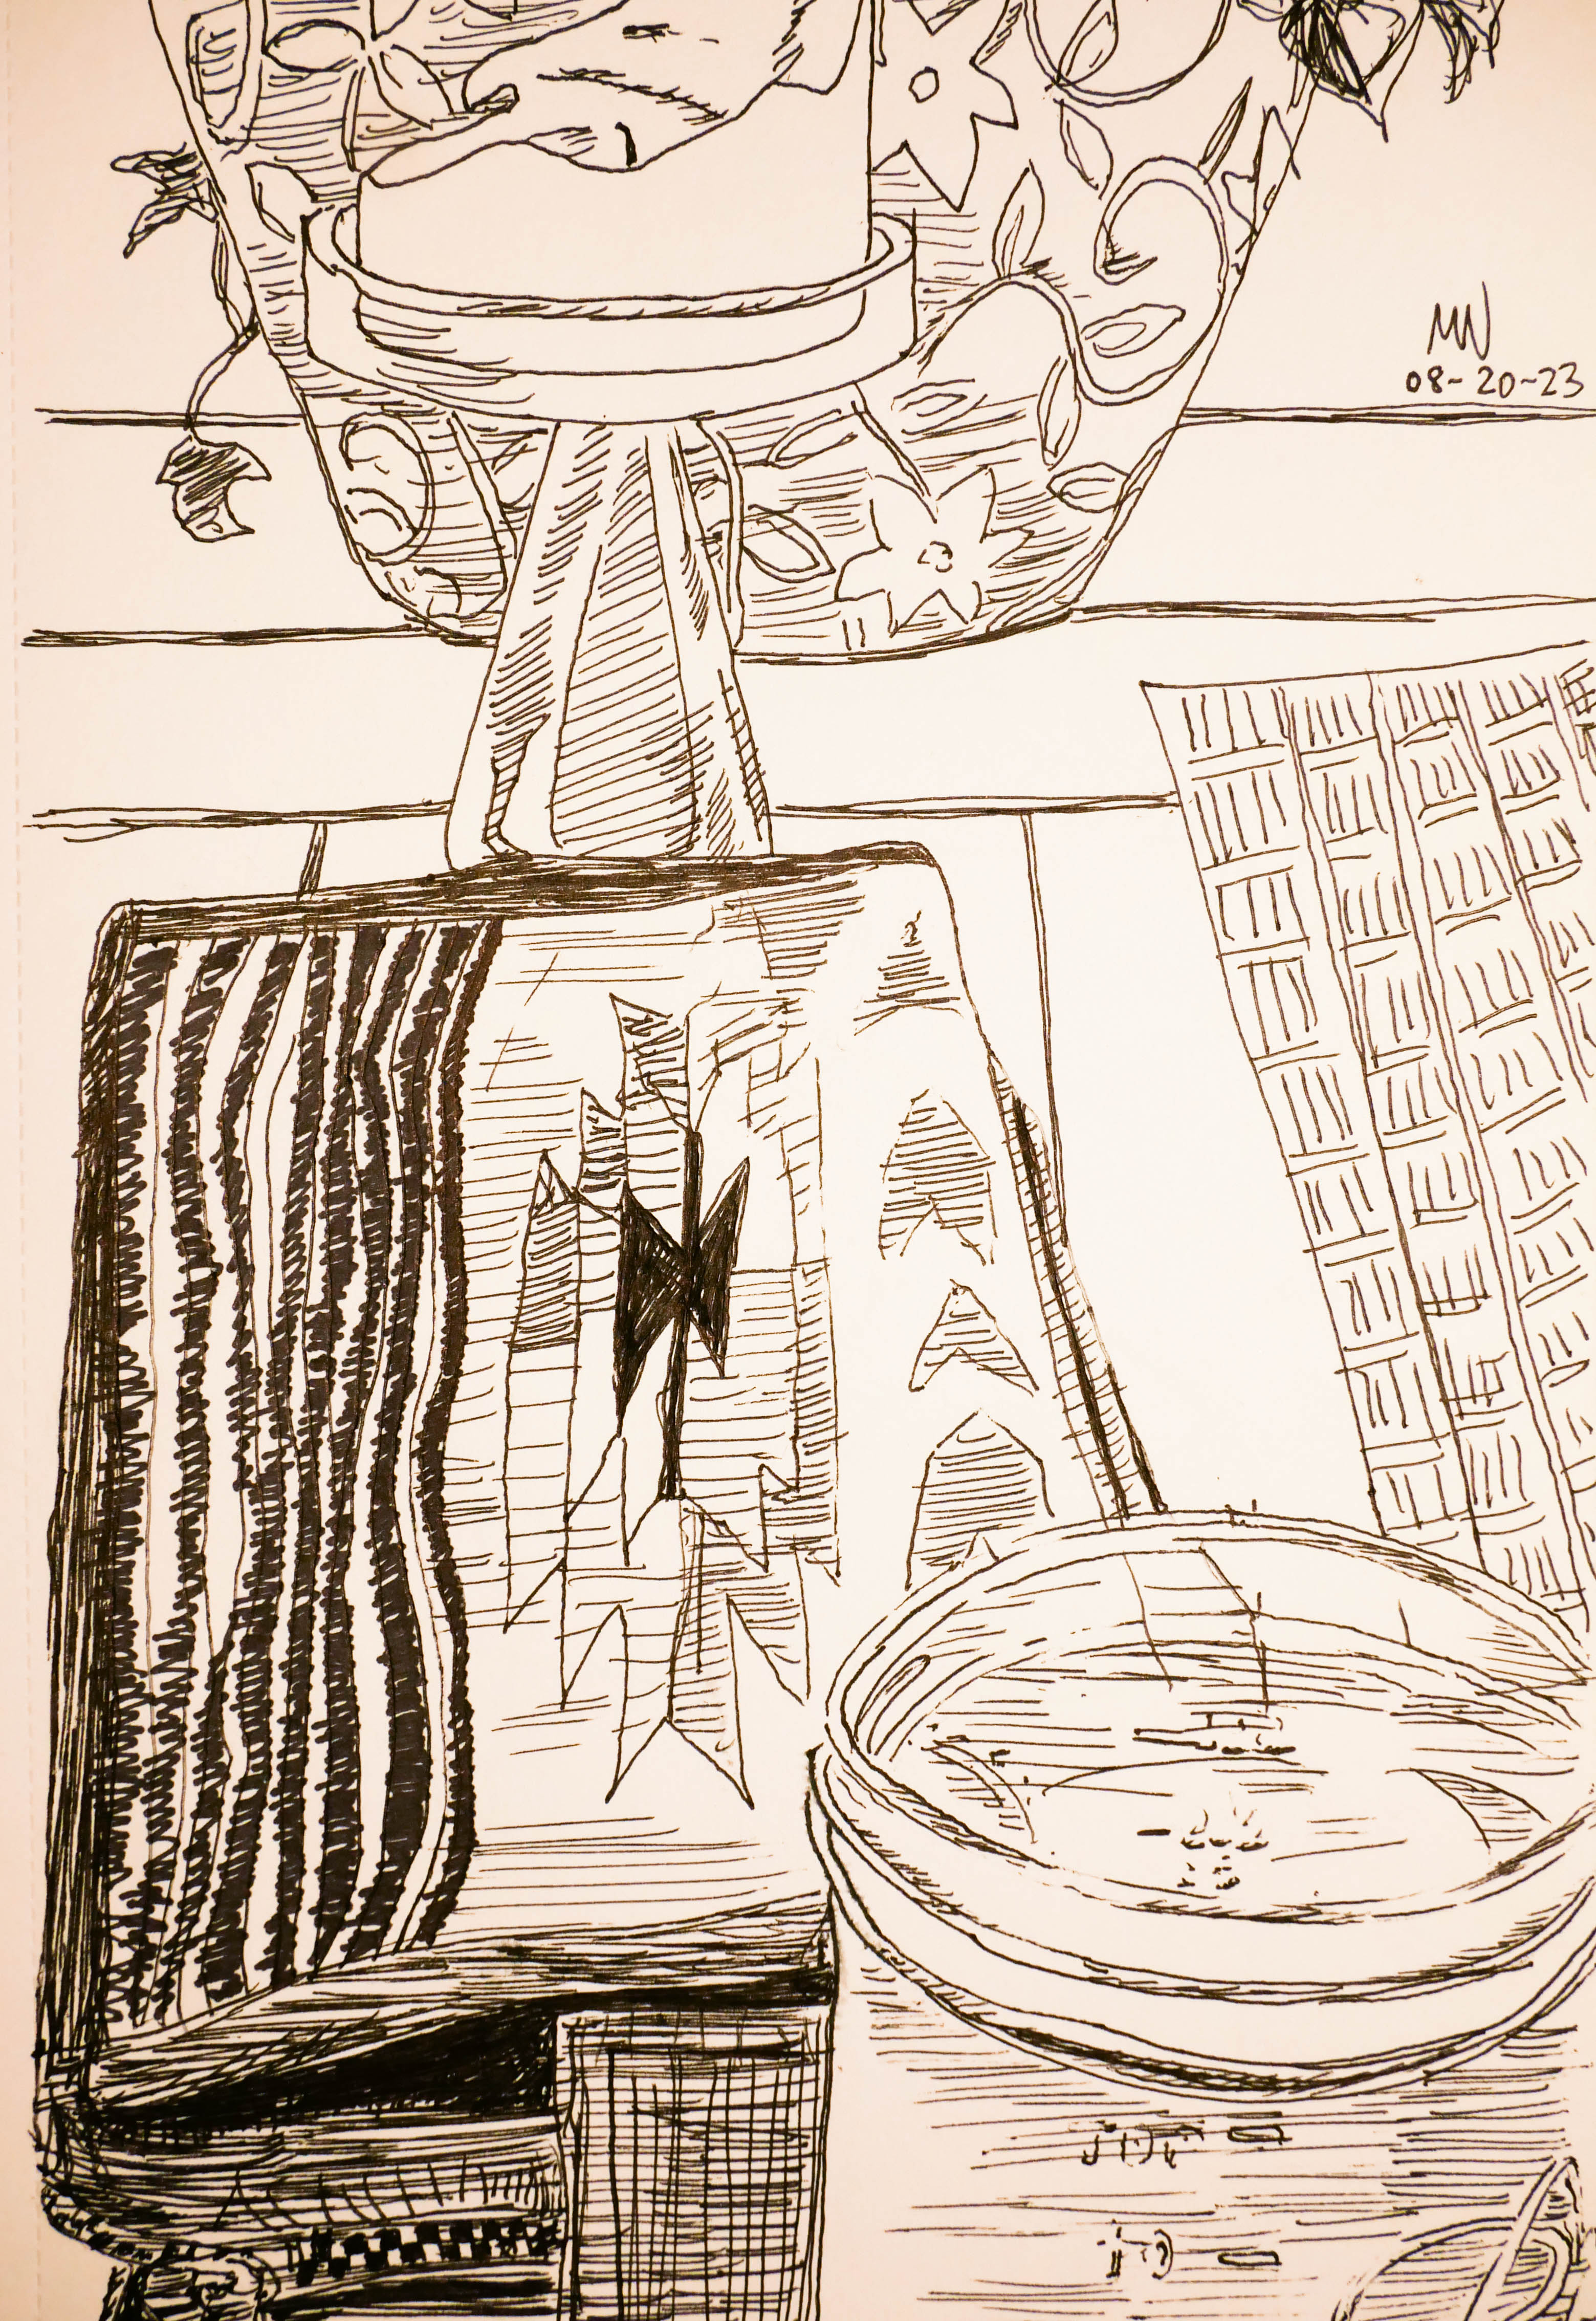 MN
08-20-23